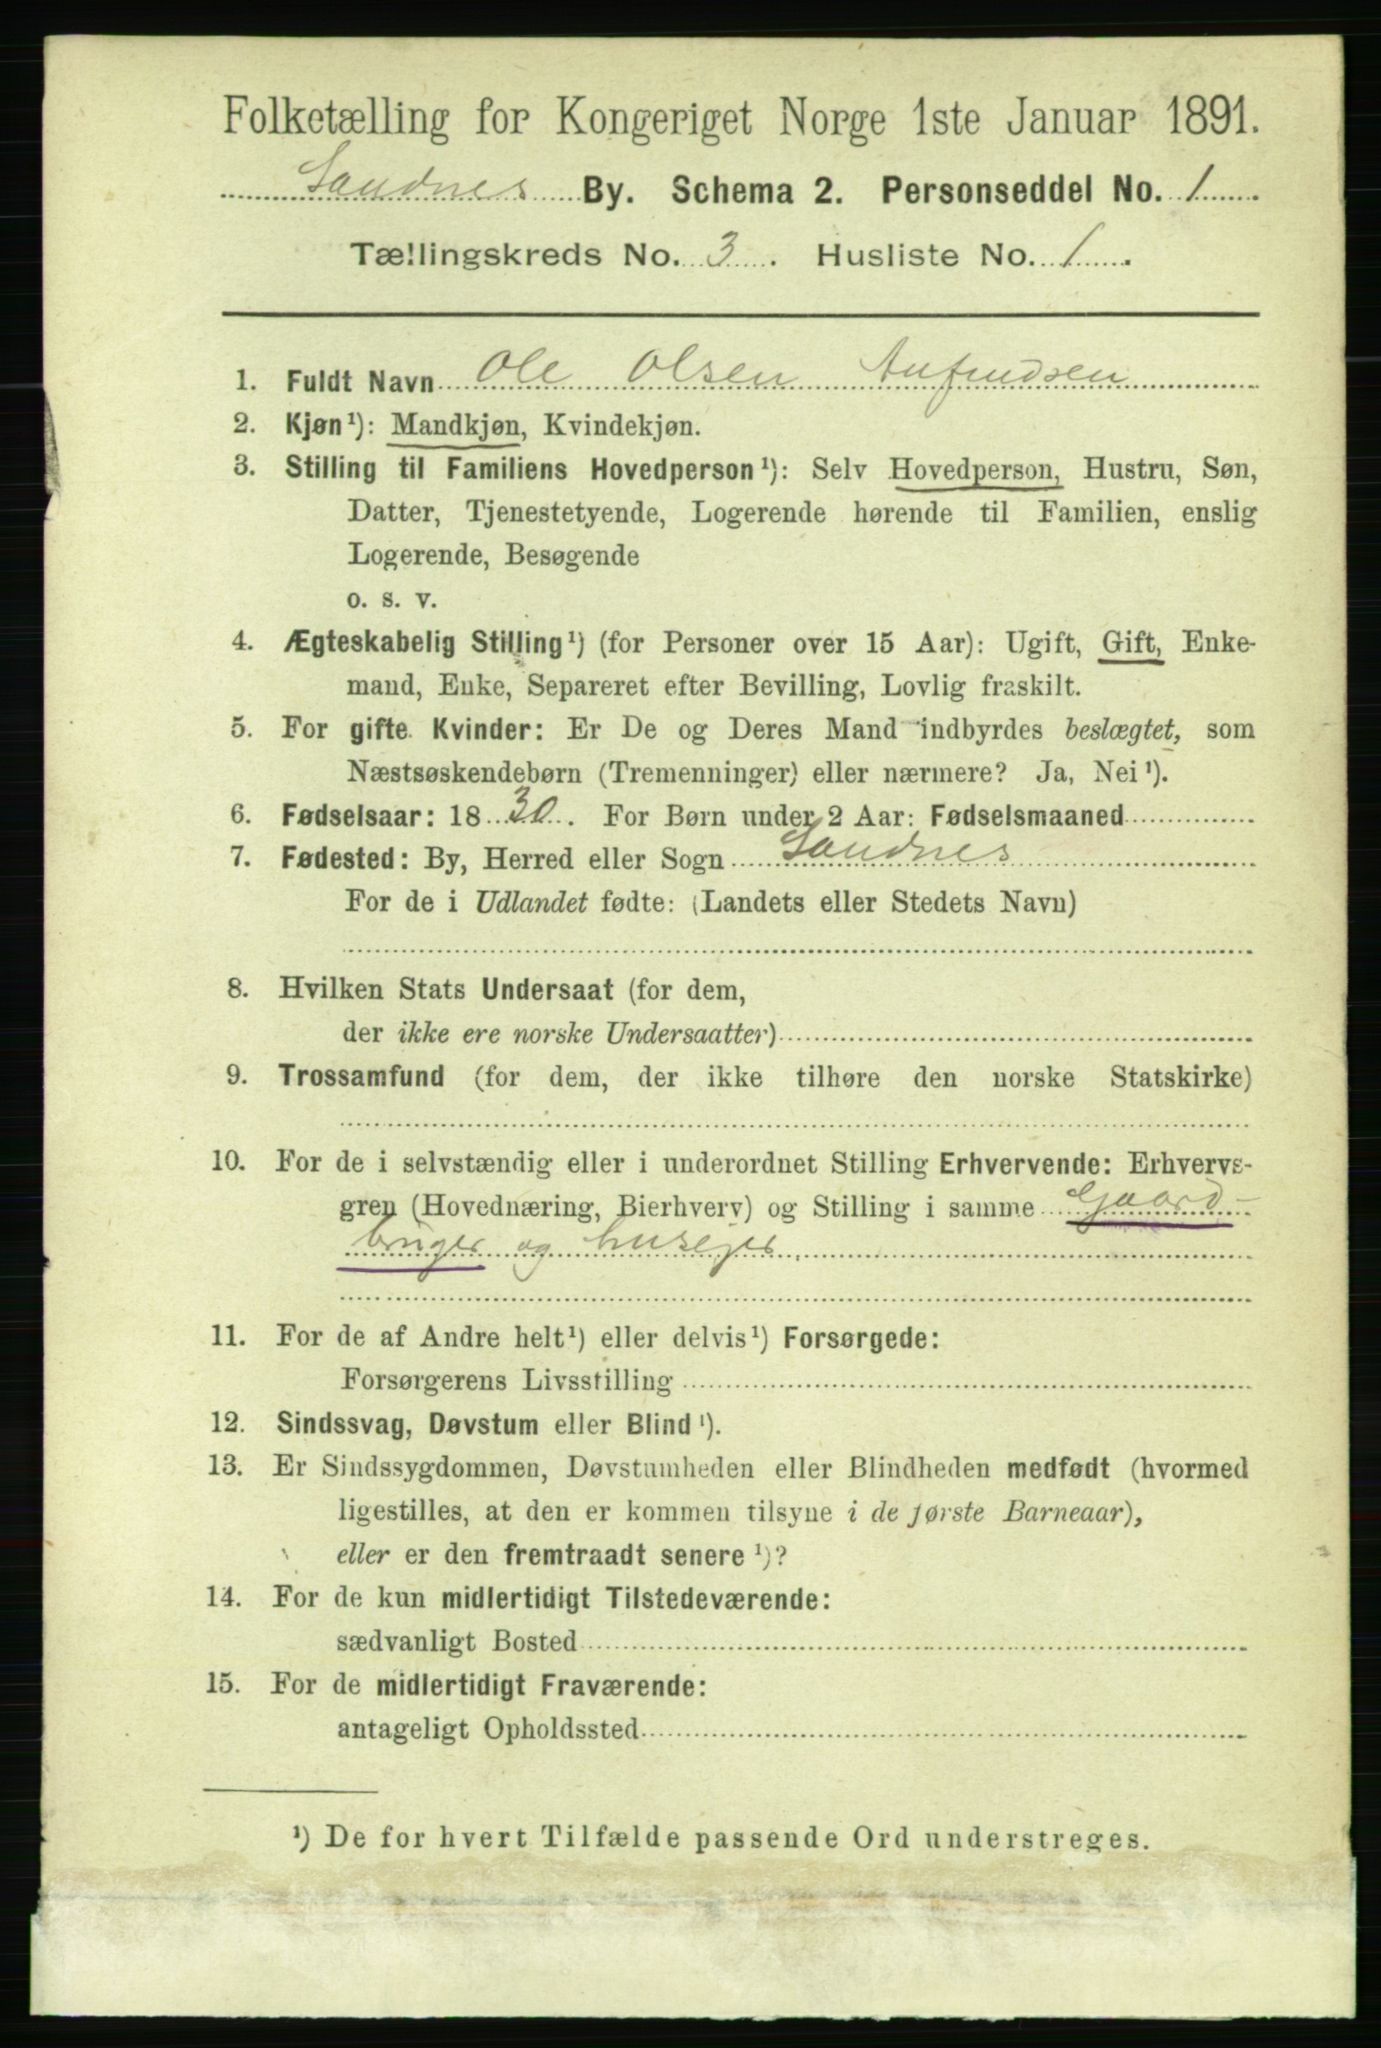 Folketælling for Kongeriget Norge 1ste Januar 1891.
Sandnes By. Schema 2. Personseddel No. 1
Tællingskreds No. 3. Husliste No. 1.
1. Fuldt Navn Ole Olsen Anfindsen
2. Kjøn¹): Mandkjøn, Kvindekjøn.
3. Stilling til Familiens Hovedperson¹): Selv Hovedperson, Hustru, Søn,
Datter, Tjenestetyende, Logerende hørende til Familien, enslig
Logerende, Besøgende
o. s. v.
4. Ægteskabelig Stilling¹) (for Personer over 15 Aar): Ugift, Gift, Enke-
mand, Enke, Separeret efter Bevilling, Lovlig fraskilt.
5. For gifte Kvinder: Er De og Deres Mand indbyrdes beslægtet, som
Næstsøskendebørn (Tremenninger) eller nærmere? Ja, Nei¹).
6. Fødselsaar: 1830. For Børn under 2 Aar: Fødselsmaaned
7. Fødested: By, Herred eller Sogn Sandnes
For de i Udlandet fødte: (Landets eller Stedets Navn)
8. Hvilken Stats Undersaat (for dem,
der ikke ere norske Undersaatter)
9. Trossamfund (for dem, der ikke tilhøre den norske Statskirke)
10. For de i selvstændig eller i underordnet Stilling Erhvervende: Erhvervs-
gren (Hovednæring, Bierhverv) og Stilling i samme Gaard-
bruger og husejer.
11. For de af Andre helt¹) eller delvis¹) Forsørgede:
Forsørgerens Livsstilling
12. Sindssvag, Døvstum eller Blind¹).
13. Er Sindssygdommen, Døvstumheden eller Blindheden medfødt (hvormed
ligestilles, at den er kommen tilsyne i de første Barneaar),
eller er den fremtraadt senere¹)?
14. For de kun midlertidigt Tilstedeværende:
sædvanligt Bosted
15. For de midlertidigt Fraværende:
antageligt Opholdssted
¹) De for hvert Tilfælde passende Ord understreges.